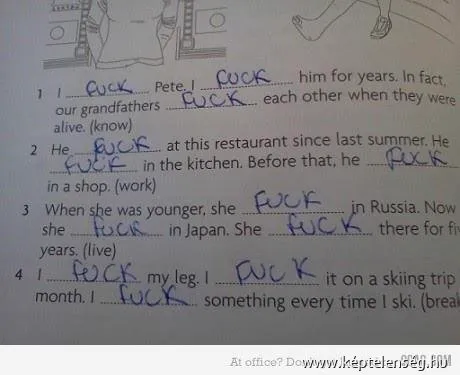 1 I FUCK Pete. I FUCK him for years. In fact,
our grandfathers FUCK each other when they were
alive. (know)
2 He FUCK at this restaurant since last summer. He
FUCK in the kitchen. Before that, he FUCK
in a shop. (work)
3 When she was younger, she FUCK in Russia. Now
she FUCK in Japan. She FUCK there for fi
years. (live)
4 I FUCK my leg. I FUCK it on a skiing trip
month. I FUCK something every time I ski. (brea
At office?
www.képtelenség.hu